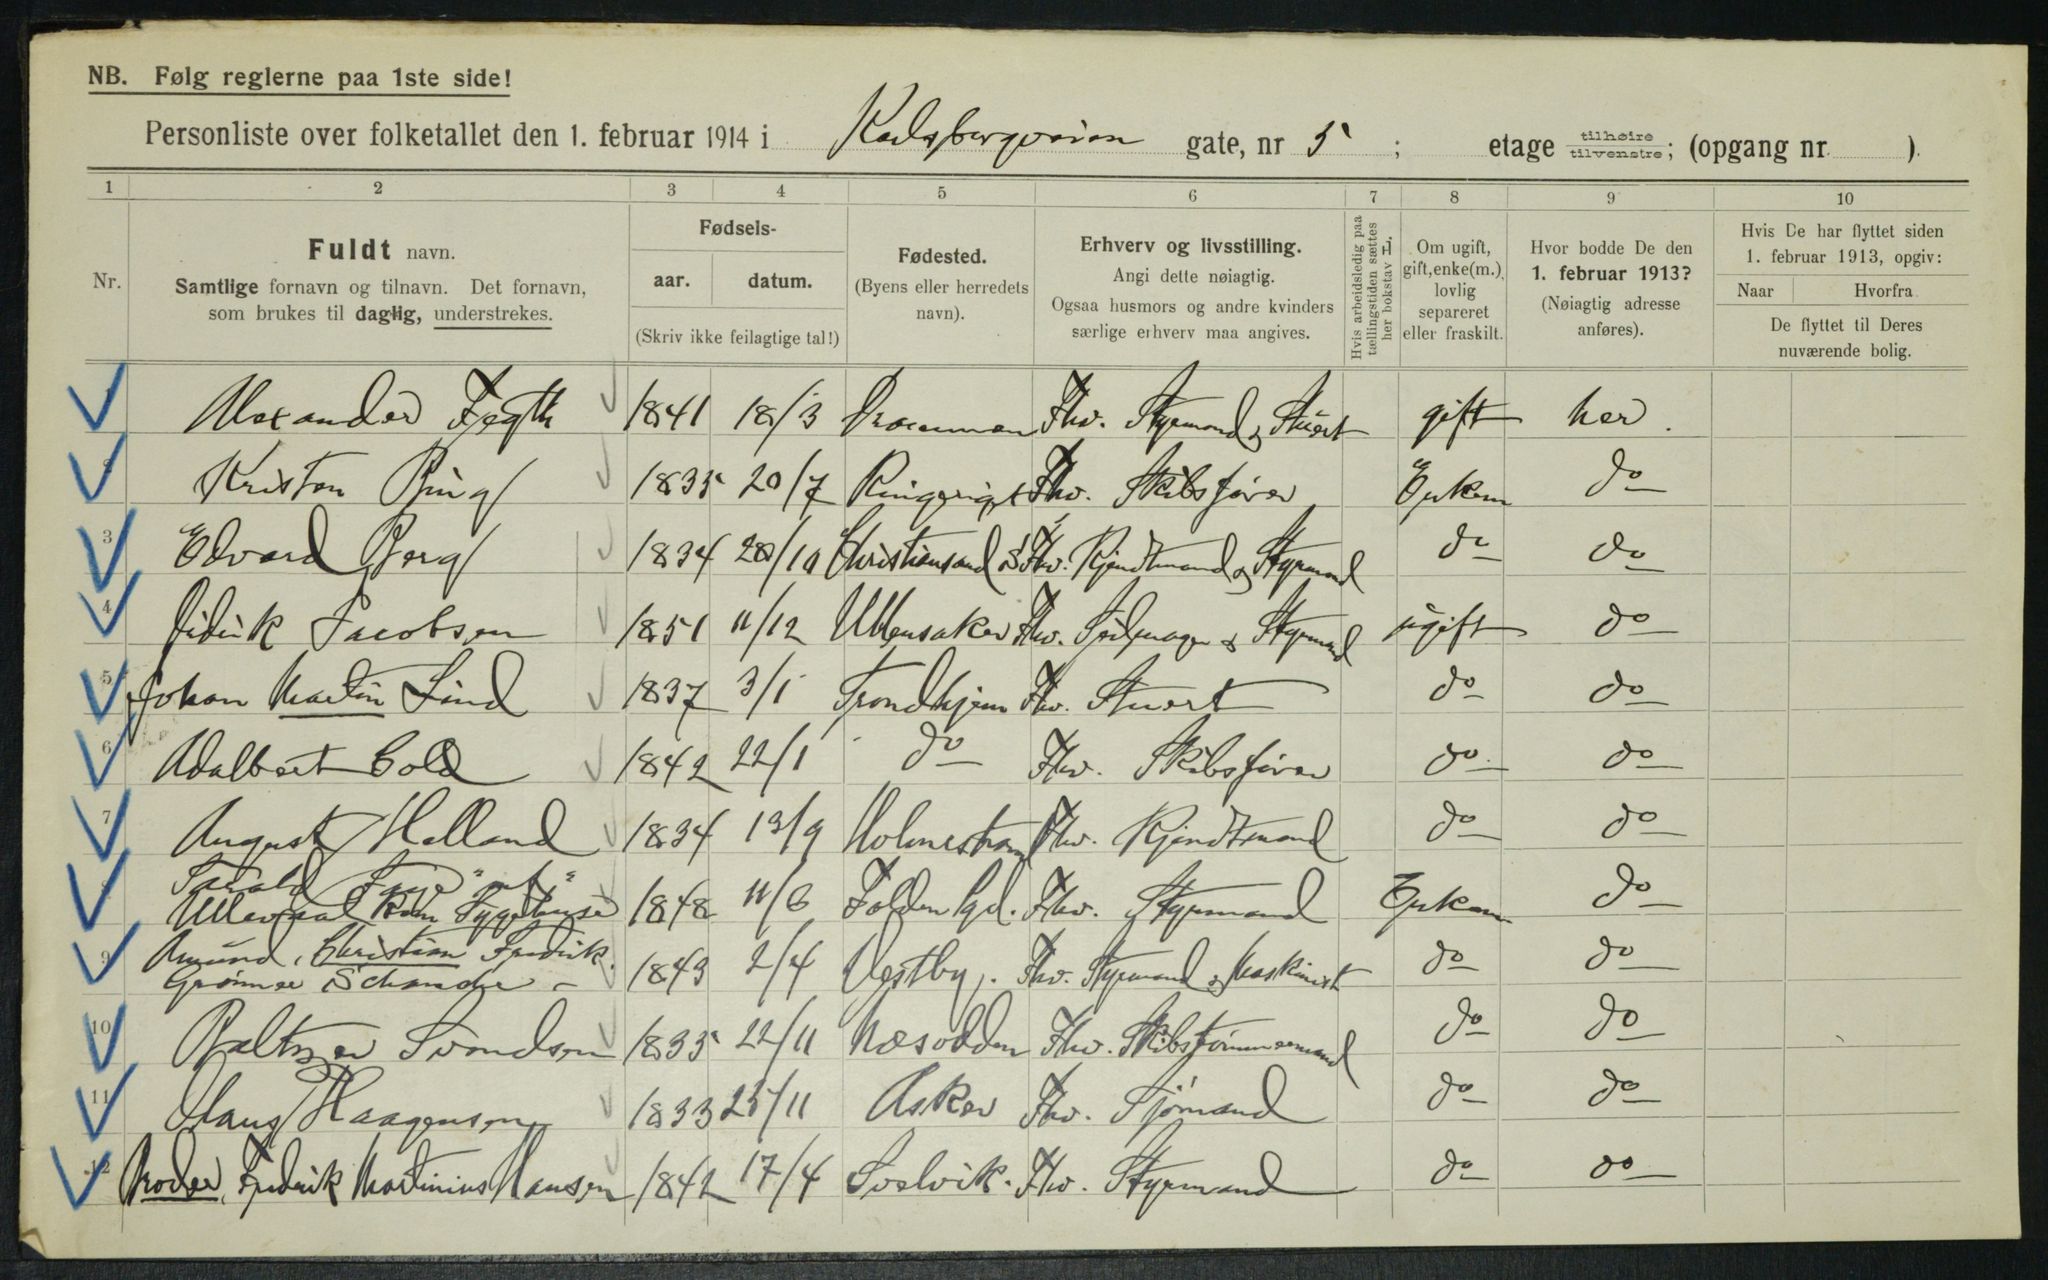 NB. Følg reglerne paa 1ste side!
Personliste over folketallet den 1. februar 1914 i gate, nr 5 ; etage tilhøire tilvenstre; (opgang nr. ).
1 2 3 4 5 6 7 8 9 10
Nr.
Fuldt navn.
Samtlige fornavn og tilnavn. Det fornavn,
som brukes til daglig, understrekes.
Fødsels-
aar. datum.
(Skriv ikke feilagtige tal!)
Fødested.
(Byens eller herredets
navn).
Erhverv og livsstilling.
Angi dette nøiagtig.
Ogsaa husmors og andre kvinders
særlige erhverv maa angives.
Hvis arbeidsledig paa
tællingstiden sættes
her bokstav L.
Om ugift,
gift, enke(m.),
lovlig
separeret
eller fraskilt.
Hvor bodde De den
1. februar 1913?
(Nøiagtig adresse
anføres).
Hvis De har flyttet siden
1. februar 1913, opgiv:
Naar Hvorfra
De flyttet til Deres
nuværende bolig.
1 Alexander 1841 18/3 Drammen Fhv. Styrmand & Stuert gift her.
2 Kristen 1835 20/7 Ringerige Fhv. Skibsfører Enkem do
3 Edvard Berg 1834 20/10 Christiansand S Fhv. Kjendtmand & Styrmand do do
4 Didrik Jacobsen 1851 11/12 Ullensaker Fhv. Seilmager & Styrmand ugift do
5 Johan Martin Lind 1837 3/1 Trondhjem Fhv. Stuert do do
6 Adalbert Cold 1842 22/1 do Fhv. Skibsfører do do
7 August Holland 1834 13/9 Holmestrand Fhv. Kjendtmand do do
8 Tarald
Ullevaal Kom Sygehuse 1848 11/6 Folden Fhv. Styrmand Enkem do
9 Amund, Christian Fredrik
Grønner Schanche 1843 2/4 Vestby. Fhv. Styrmand & Maskinist do do
10 Baltzer Svendsen 1835 22/11 Næsodden Fhv. Skibstømmermand do do
11 Hans Haagensen 1833 25/11 Asker Fhv. Sjømand do do
12 Broder, Fredrik Martinius Hansen 1842 17/4 Svelvik. Fhv. Styrmand do do